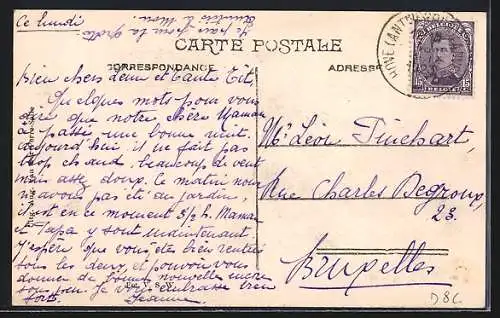 Ce lundi
Je pars pour la grotte
CARTE POSTALE
CORRESPONDANCE
ADRESSE
15 BELGIE 15
Bien chers Léon et tante Tit,
Quelques mots pour vous
dire que notre chère Maman
a passé une bonne nuit.
Aujourd'hui il ne fait pas
trop chaud, beaucoup de vent
mais assez doux. Ce matin nous
n'avons pas été au jardin,
il est en ce moment 3 1/2 h. Maman
et Papa y sont maintenant.
J'espère que vous êtes bien rentrés
tous les deux, et pouvoir vous
donner de bonnes nouvelles encore
sous peu. Je vous embrasse bien
fort. Jeanne
Mr Léon Finchart,
Rue Charles Degroux,
23.
Bruxelles
D86